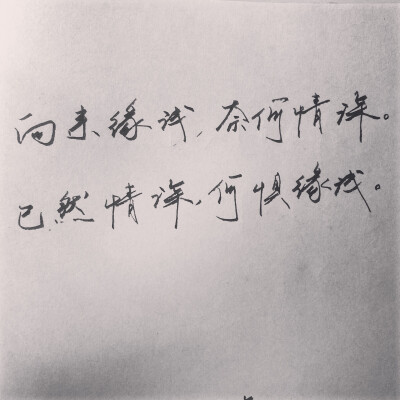 向来缘浅,奈何情深。
已然情深,何惧缘浅。